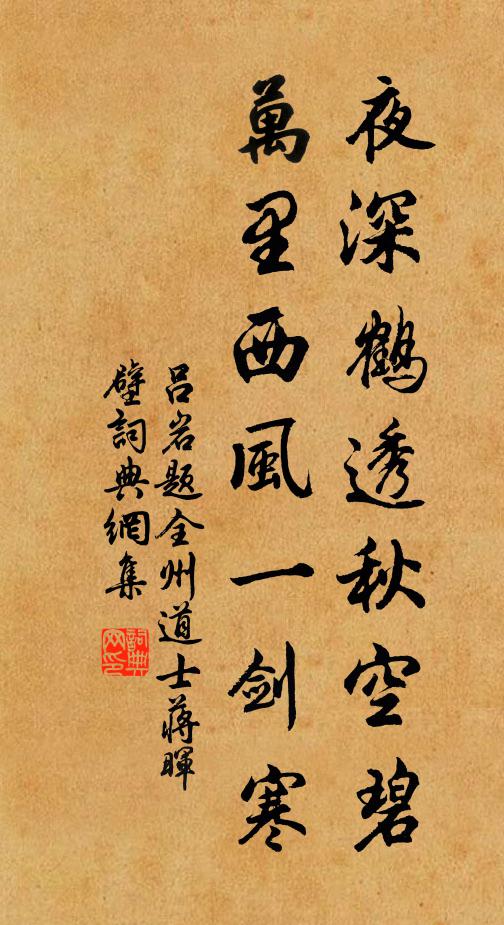 夜深鶴透秋空碧
萬里西風一劍寒
吕岩题全州道士蔣暉
壁詞典網集
詞典网印